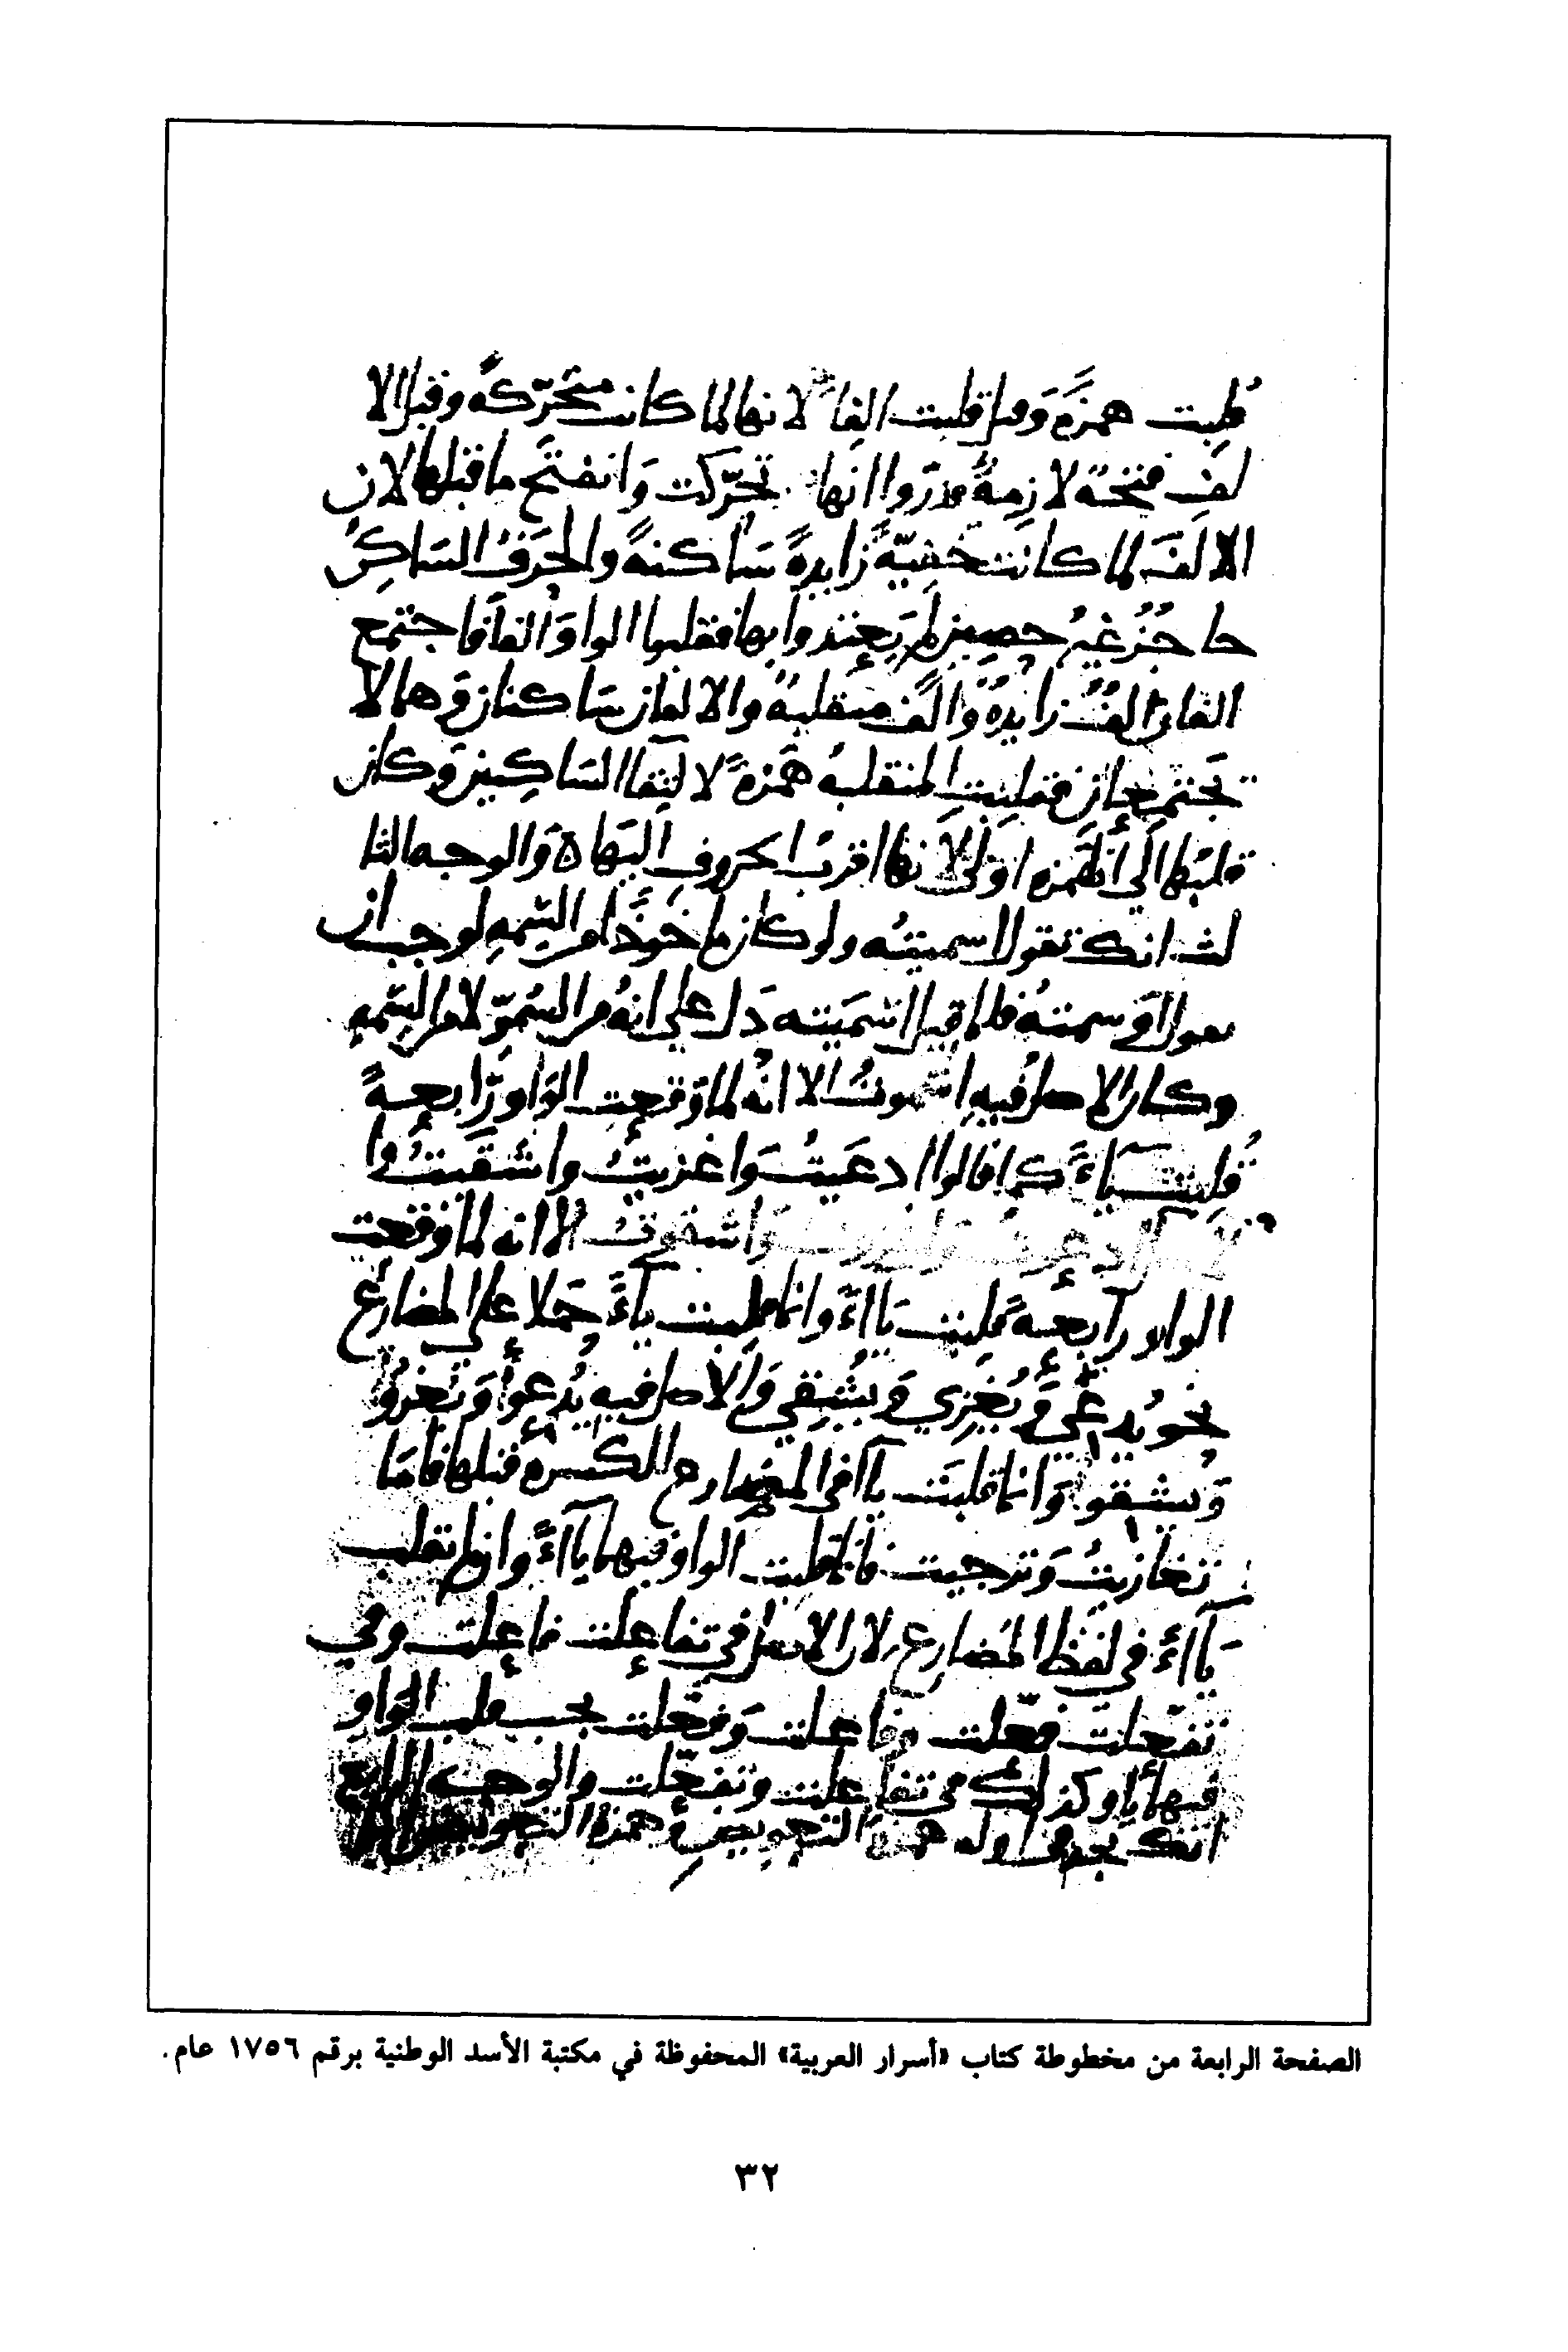 قلبت همزَة وَقيل قلبت الفاً لانها لما كانت متحَرّكةً وقبل الا
لف فتحة لازمةٌ قدرَوا انها تحَرّكت وَانفتحَ ما قبلها لان
الالفَ لما كانَت خفيّةً زايدةً سَاكنةً والحَرفُ السَاكِنُ
حاجزٌ غيرُ حصِين لم يَعتدوا بها فقلبوا الواوَ الفاً فاجتمع
الفان الفٌ زايدةٌ وَالفٌ منقلبةٌ والالفان سَاكنان وَهما لا
يَجتمعان فقلبَتِ المنقلبةُ همزةً لالتقا السَاكِنين وَكان
قلبُها الى الهَمزه اوَلى لانها اقربُ الحروف اليَها ٥ وَالوجه الثا
لث انك تقول اسميتُه ولو كان ماخوذًا من السِّمهِ لوجب ان
تقول اوَسمتهُ فلما قيل اسمَيته دَل على انهُ من السُموّ لا من السِّمهِ
وكان الاصل فيهِ اسموتُ الا انهُ لما وَقعتِ الوَاو رَابعةً
قُلبتَ ياءً كما قالوا ادعَيتُ وَاغزيتُ واشقَيتُ وا
لاصل ادعوتُ وَاغزوت وَاشقوتُ الا انه لما وَقعت
الواو رَابعةً قلبَت يَاءً وانما قلبت ياءً حَملا على المضارع
نحو يُدعي وَيُغزِي وَيُشقِي وَالاصل فيه يُدعوُ وَيُغزوُ
وَيُشقو وَانما قلبَت ياً في المضارع للكسرة قبلها فامَا
تغازيتُ وَترجيت فانما قلبت الواو فيهما ياءً وان لم تقلب
يَاءً في لفظ المضارع لان الاصل في تفاعلت فاعلت وفي
تفعّلت فعّلت وفاعلت وَفعّلت يجب قلب الوَاو
فيهما ياً وكذلك في تفاعلت وَتفعّلت والوجه الرابع
انك تجد في اوله همزةَ التعويض وَهمزة التعويض
الصفحة الرابعة من مخطوطة كتاب «أسرار العربية» المحفوظة في مكتبة الأسد الوطنية برقم ١٧٥٦ عام.
٣٢